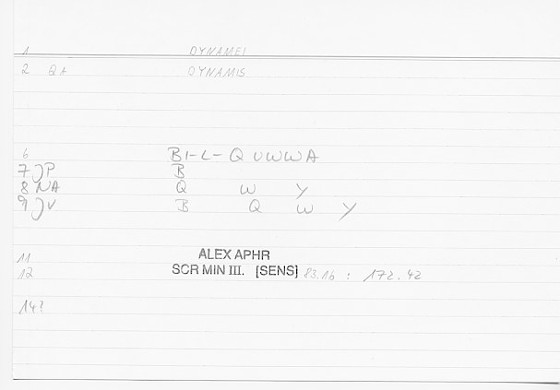 1 DYNAMEI
2 QA DYNAMIS
6 BI-L-QUWWA
7 )P B
8 NA Q W Y
9 )V B Q W Y
11 ALEX APHR
12 SCR MIN III. [SENS] 83.16 : 172.42
14?